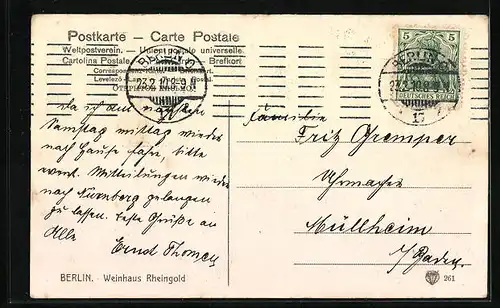 Postkarte – Carte Postale
Weltpostverein. – Union postale universelle.
Cartolina Postale
Brefkort
Correspondenz-Karte
Levelező-Lap
BERLIN.C
27.2.10.8-9.N
17
BERLIN.C
27.2.10.8-9.N
17
5 5
DEUTSCHES REICH
da ich am nächsten
Samstag mittag wieder
nach Hause fahre, bitte
wert. Mitteilungen wieder
nach Nürnberg gelangen
zu lassen. Beste Grüße an
Alle
Ernst
Familie
Fritz Gremper
Uhrmacher
Müllheim
i/Baden.
BERLIN. Weinhaus Rheingold
261